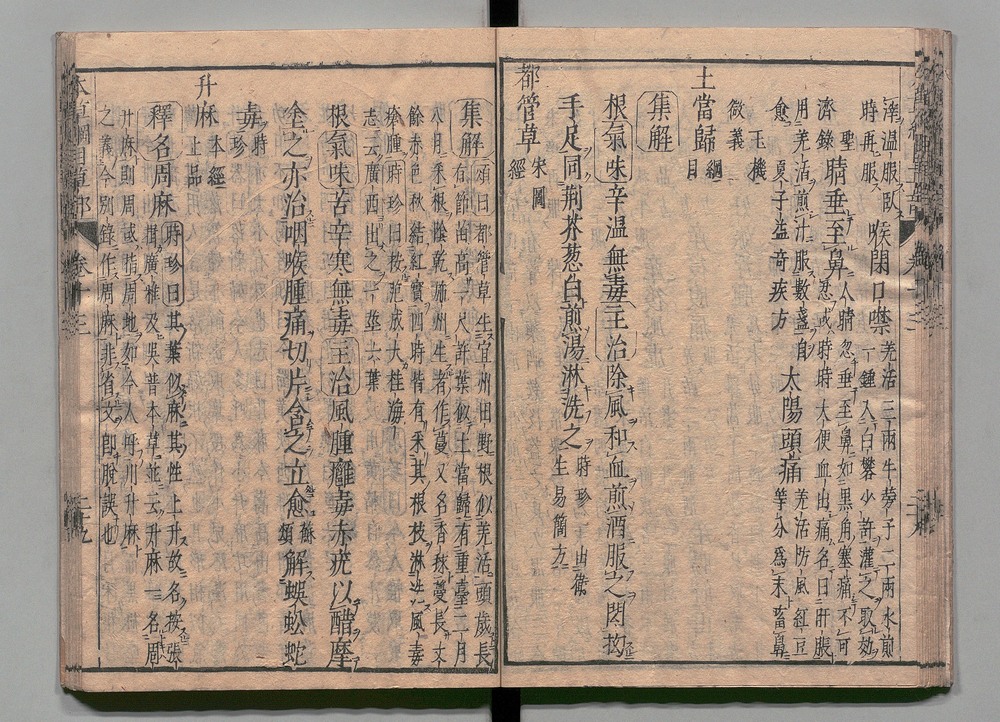 滓溫服臥
時再服 喉閉口噤 羌活三兩牛蒡子二兩水煎
聖 一鍾入白礬少許灌之取効
濟錄 睛垂至鼻 人睛忽垂至鼻如黑角塞痛不可
忍或時時大便血出痛名曰肝脹
用羌活煎汁服數盞自
愈 夏子益奇疾方 太陽頭痛 羌活防風紅豆
等分爲末㗜鼻
玉機
微義
土當歸 綱目
集解
根氣味辛溫無毒主治除風和血煎酒服之閃拗
手足同荊芥葱白煎湯淋洗之 時珍 ○出衛生易簡方
都管草 宋圖經
集解 頌曰都管草生宜州田野根似羌活頭歲長
一節苗高一尺許葉似土當歸有重臺二月
八月采根陰乾施州生者作蔓又名香毬蔓長丈
餘赤色秋結紅實四時皆有采其根枝淋洗風毒
瘡腫時珍曰按范成大桂海
志云廣西出之一莖六葉
根氣味苦辛寒無毒主治風腫癰毒赤疣以醋摩
塗之亦治咽喉腫痛切片含之立愈 蘇頌 解蜈蚣蛇
毒 時珍
升麻 本經上品
釋名周麻 時珍曰其葉似麻其性上升故名按張
揖廣雅及吳普本草並云升麻一名周
升麻則周或指周地如今人呼川升麻
之義今別錄作周麻非省文卽脫誤也
本草綱目草部 卷十三